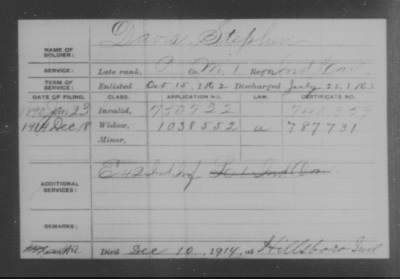 Davis, Stephen
NAME OF SOLDIER:
SERVICE: Late rank, P Co. M, 1 Reg't Ind Cav.
TERM OF SERVICE: Enlisted Oct 15, 1862 Discharged July 22, 1863
DATE OF FILING. CLASS. APPLICATION NO. LAW. CERTIFICATE NO.
1890 Jan 23 Invalid, 750722
1914 Dec 18 Widow, 1038552 a 787731
Minor,
ADDITIONAL SERVICES: E 42 Ind Inf
REMARKS:
Died Dec 10, 1914, at Hillsboro Ind